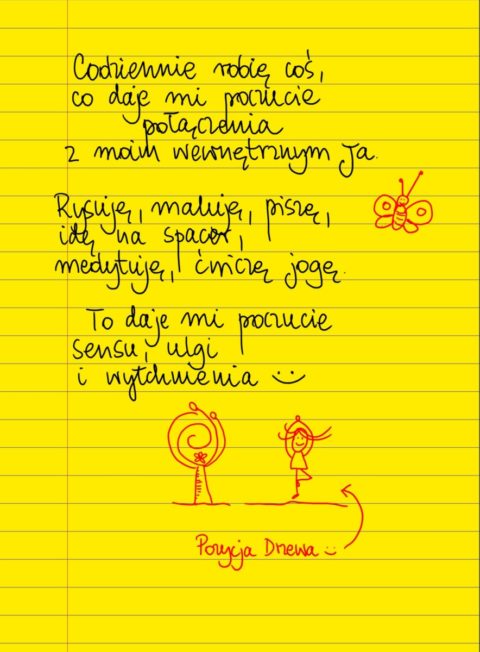 Codziennie robię coś,
co daje mi poczucie
połączenia
z moim wewnętrznym Ja.
Rysuję, maluję, piszę,
idę na spacer,
medytuję, ćwiczę jogę.
To daje mi poczucie
sensu, ulgi
i wytchnienia :-)
Pozycja Drzewa :-)